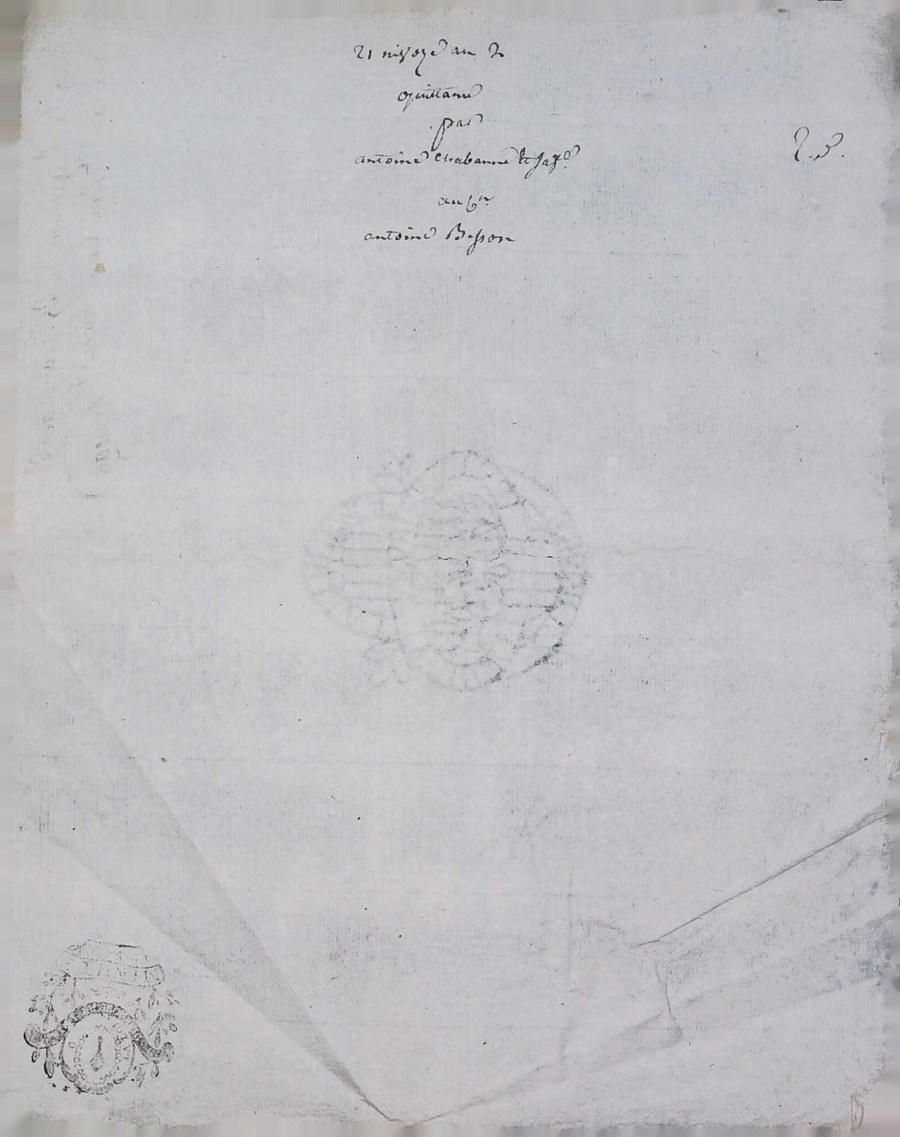 21 nivoze an 2
quittance
par
antoine Chabanne &
au
antoine Besson